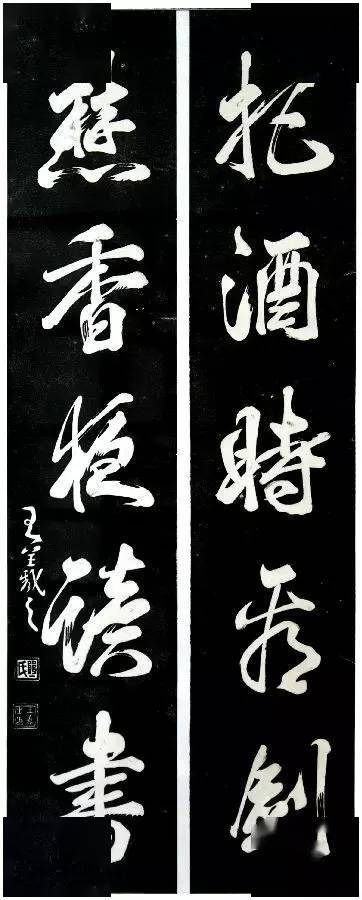 把酒時看劍
香夜讀書
王羲之